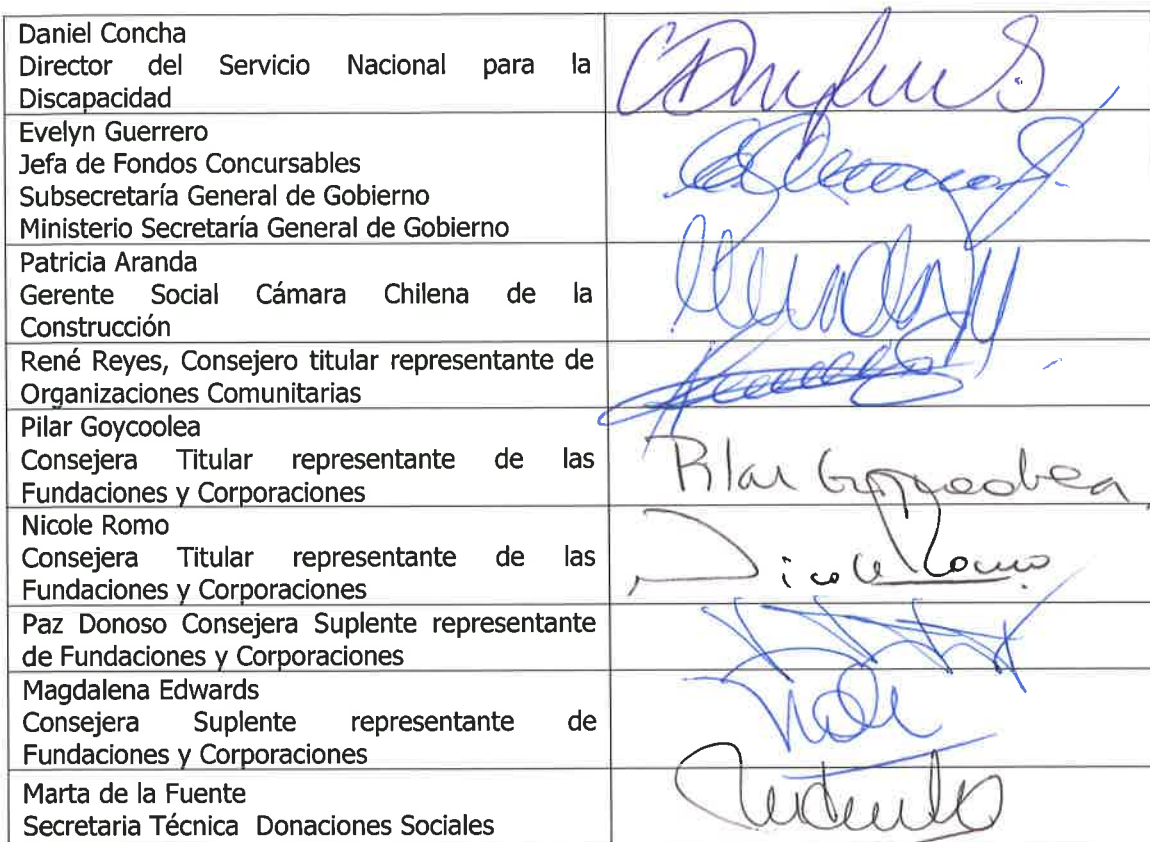 Daniel Concha
Director del Servicio Nacional para la
Discapacidad
Evelyn Guerrero
Jefa de Fondos Concursables
Subsecretaría General de Gobierno
Ministerio Secretaría General de Gobierno
Patricia Aranda
Gerente Social Cámara Chilena de la
Construcción
René Reyes, Consejero titular representante de
Organizaciones Comunitarias
Pilar Goycoolea
Consejera Titular representante de las
Fundaciones y Corporaciones
Pilar Goycoolea
Nicole Romo
Consejera Titular representante de las
Fundaciones y Corporaciones
Nicole Romo
Paz Donoso Consejera Suplente representante
de Fundaciones y Corporaciones
Magdalena Edwards
Consejera Suplente representante de
Fundaciones y Corporaciones
Marta de la Fuente
Secretaria Técnica Donaciones Sociales